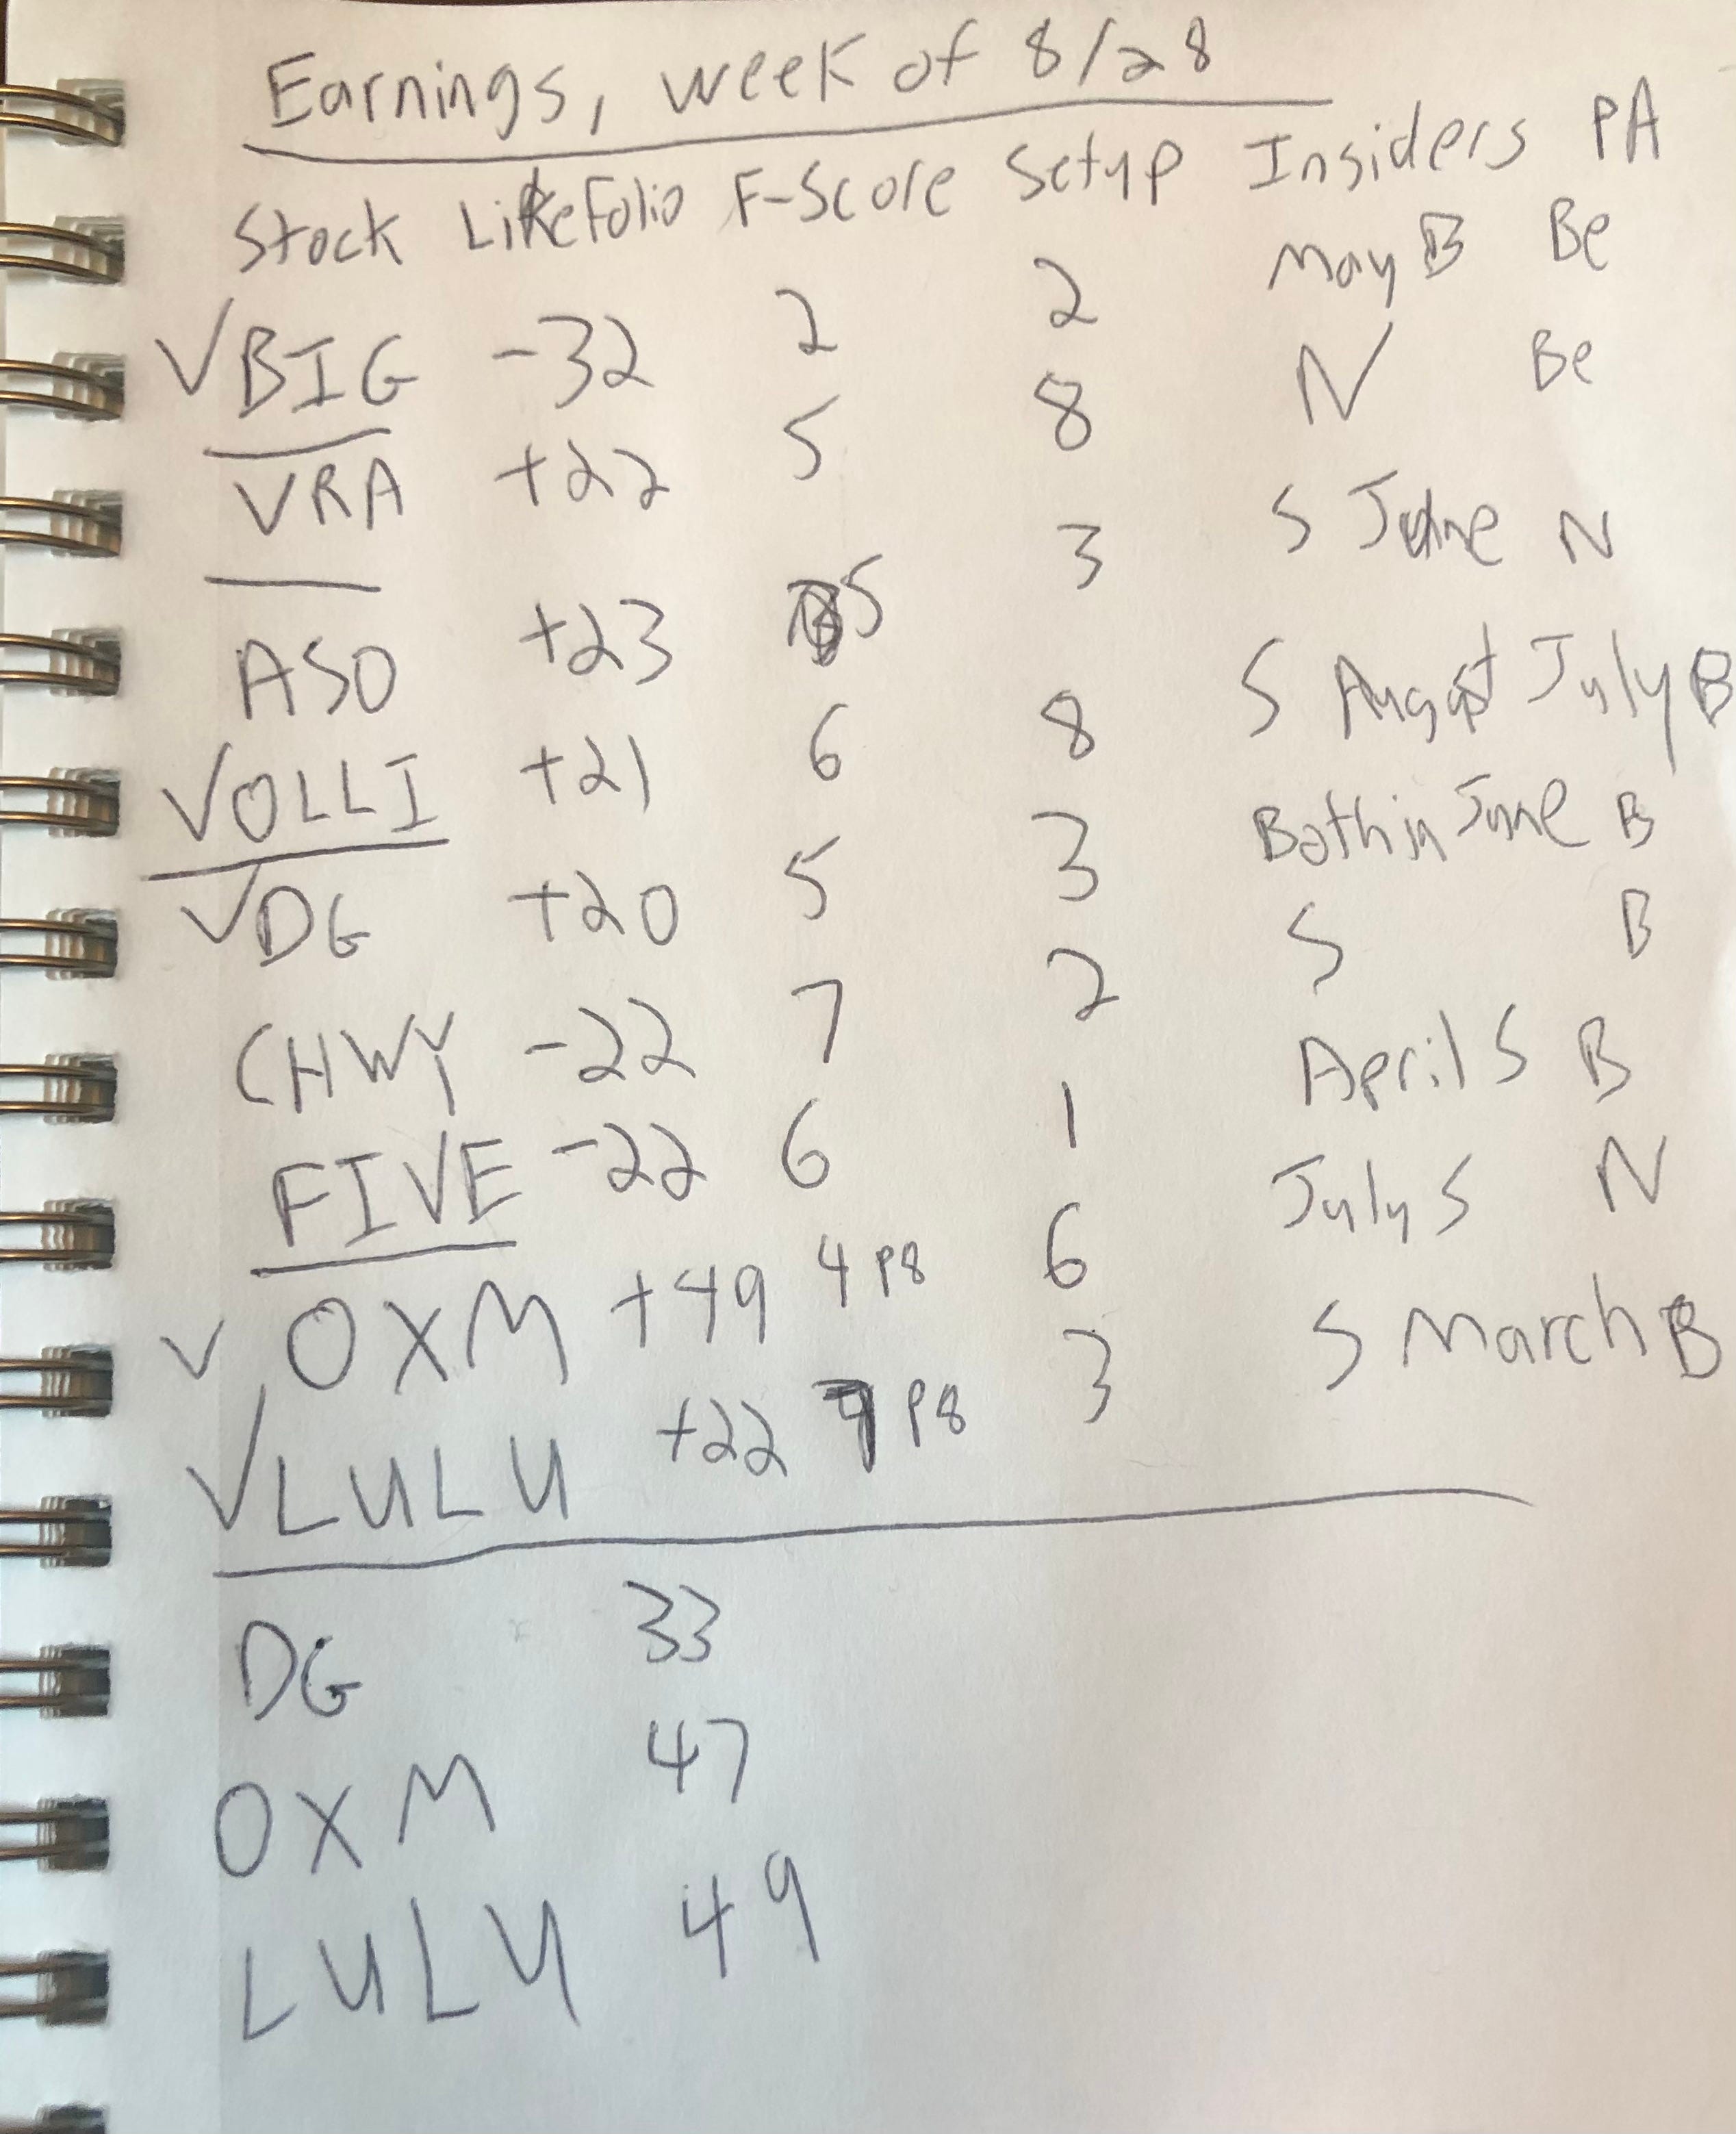 Earnings, week of 8/28
Stock LikeFolio F-Score Setup Insiders PA
✓ BIG -32 2 2 May B Be
VRA +22 5 8 N Be
ASO +23 5 3 S June N
✓ OLLI +21 6 8 S August July B
✓ DG +20 5 3 Both in June B
CHWY -22 7 2 S B
FIVE -22 6 1 April S B
✓ OXM +49 4 P8 6 July S N
✓ LULU +22 7 P8 3 S March B
DG 33
OXM 47
LULU 49